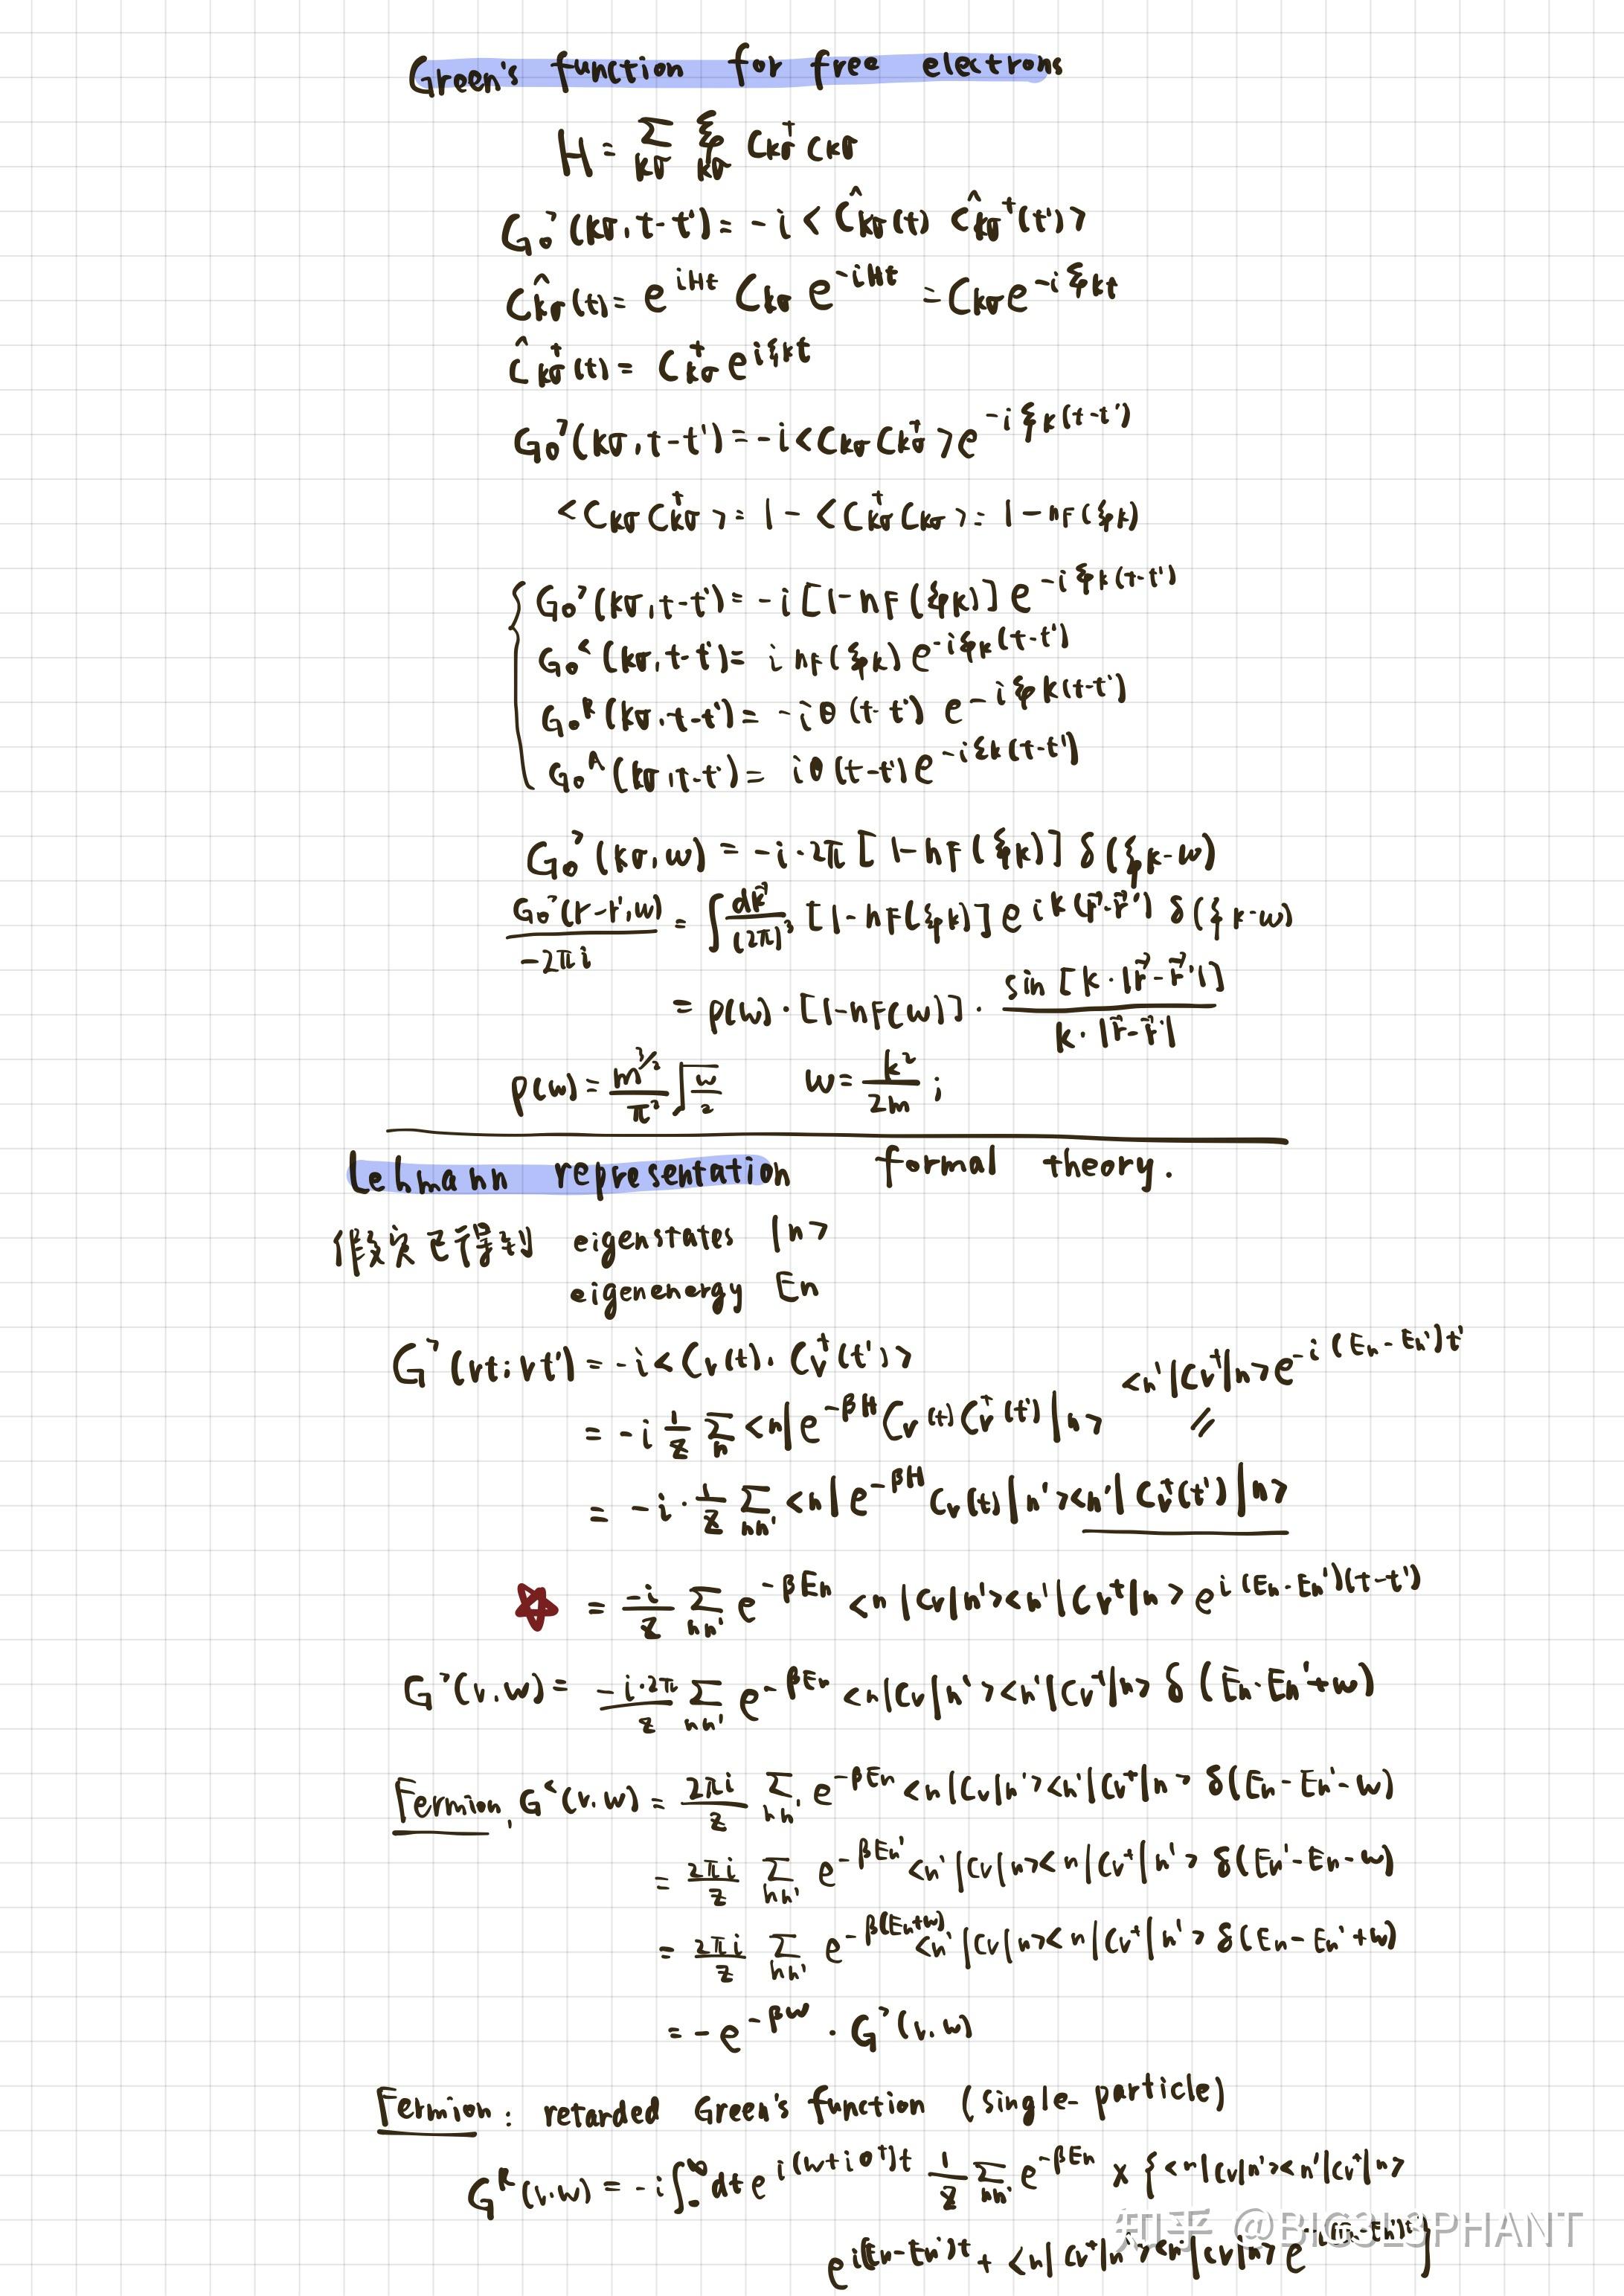 Green's function for free electrons
H = Σ_{kσ} ξ_{kσ} C_{kσ}^† C_{kσ}
G_0^>(kσ, t-t') = -i < Ĉ_{kσ}(t) Ĉ_{kσ}^†(t') >
Ĉ_{kσ}(t) = e^{iHt} C_{kσ} e^{-iHt} = C_{kσ} e^{-iξ_k t}
Ĉ_{kσ}^†(t) = C_{kσ}^† e^{iξ_k t}
G_0^>(kσ, t-t') = -i < C_{kσ} C_{kσ}^† > e^{-iξ_k(t-t')}
< C_{kσ} C_{kσ}^† > = 1 - < C_{kσ}^† C_{kσ} > = 1 - n_F(ξ_k)
G_0^>(kσ, t-t') = -i [1-n_F(ξ_k)] e^{-iξ_k(t-t')}
G_0^<(kσ, t-t') = i n_F(ξ_k) e^{-iξ_k(t-t')}
G_0^R(kσ, t-t') = -i θ(t-t') e^{-iξ_k(t-t')}
G_0^A(kσ, t-t') = i θ(t-t') e^{-iξ_k(t-t')}
G_0^>(kσ, w) = -i·2π [1-n_F(ξ_k)] δ(ξ_k-w)
G_0^>(r-r', w) / -2πi = ∫ dk⃗/(2π)^3 [1-n_F(ξ_k)] e^{ik(r⃗-r⃗')} δ(ξ_k-w)
= ρ(w)·[1-n_F(w)]· sin[k·|r⃗-r⃗'|] / k·|r⃗-r⃗'|
ρ(w) = m^{3/2}/π^2 √(w/2)   w = k^2/2m ;
Lehmann representation formal theory.
假设已得到 eigenstates |n>
eigenenergy En
G^>(νt; νt') = -i < C_ν(t). C_ν^†(t') >
<n'|C_ν^†|n> e^{-i(En-En')t'}
= -i 1/Z Σ_n <n| e^{-βH} C_ν(t) C_ν^†(t') |n>
= -i · 1/Z Σ_{nn'} <n| e^{-βH} C_ν(t) |n'><n'| C_ν^†(t') |n>
= -i/Z Σ_{nn'} e^{-βEn} <n|C_ν|n'><n'|C_ν^†|n> e^{i(En-En')(t-t')}
G^>(ν.w) = -i·2π/Z Σ_{nn'} e^{-βEn} <n|C_ν|n'><n'|C_ν^†|n> δ(En-En'+w)
Fermion, G^<(ν.w) = 2πi/Z Σ_{nn'} e^{-βEn} <n|C_ν|n'><n'|C_ν^†|n> δ(En-En'-w)
= 2πi/Z Σ_{nn'} e^{-βEn'} <n'|C_ν|n><n|C_ν^†|n'> δ(En'-En-w)
= 2πi/Z Σ_{nn'} e^{-β(En+w)} <n'|C_ν|n><n|C_ν^†|n'> δ(En-En'+w)
= -e^{-βw} · G^>(ν.w)
Fermion: retarded Green's function (single-particle)
G^R(ν.w) = -i ∫_0^∞ dt e^{i(w+i0^+)t} 1/Z Σ_{nn'} e^{-βEn} × { <n|C_ν|n'><n'|C_ν^†|n>
e^{i(En-En')t} + <n|C_ν^†|n'><n'|C_ν|n> e^{-i(En-En')t} }
知乎 @BIG3L3PHANT